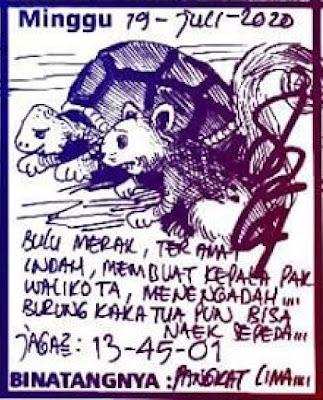 Minggu 19-JULI-2020
BULU MERAK, TERAMAT
INDAH, MEMBUAT KEPALA PAK
WALIKOTA, MENENGADAH...
BURUNG KAKA TUA PUN BISA
NAEK SEPEDA...
JAGA2: 13-45-01
BINATANGNYA : PANGKAT LIMA...